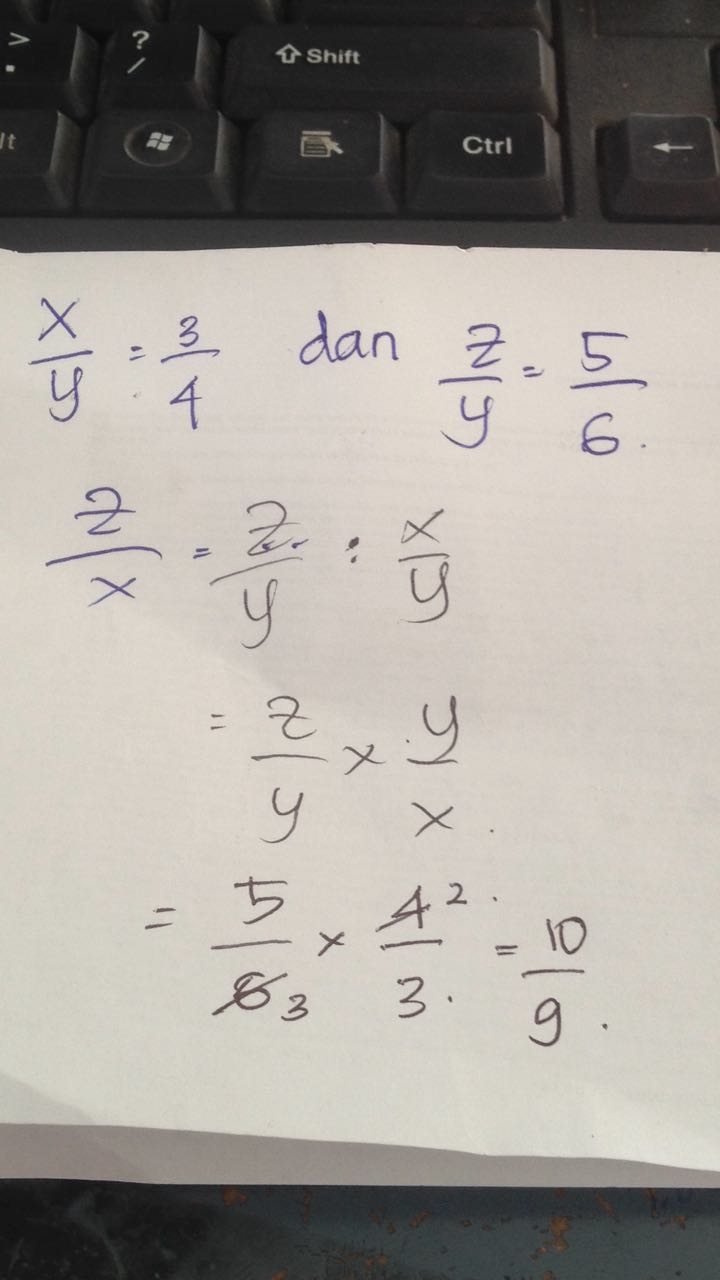 > ? ⇧ Shift
. /
lt Ctrl ←
x/y = 3/4 dan z/y = 5/6.
z/x = z/y : x/y
= z/y × y/x.
= 5/6 3 × 4 2/3. = 10/9.